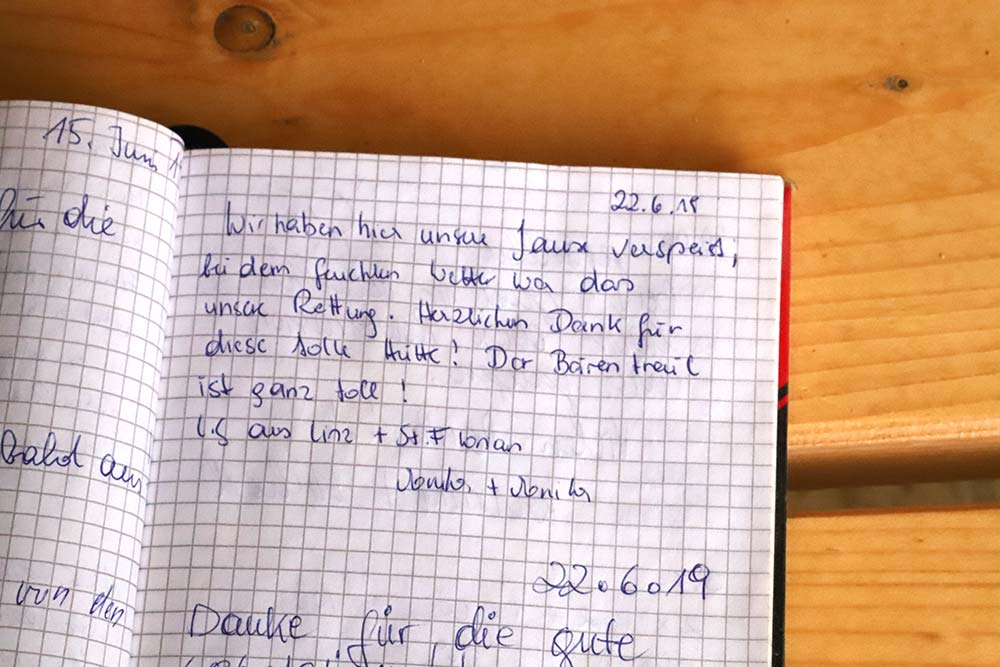 15. Juni
für die
bald am
von den
22.6.19
Wir haben hier unsere Jause verspeist,
bei dem feuchten Wetter war das
unsere Rettung. Herzlichen Dank für
diese tolle Hütte! Der Bärentreil
ist ganz toll!
LG aus Linz + St. Florian
+
22.6.19
Danke für die gute